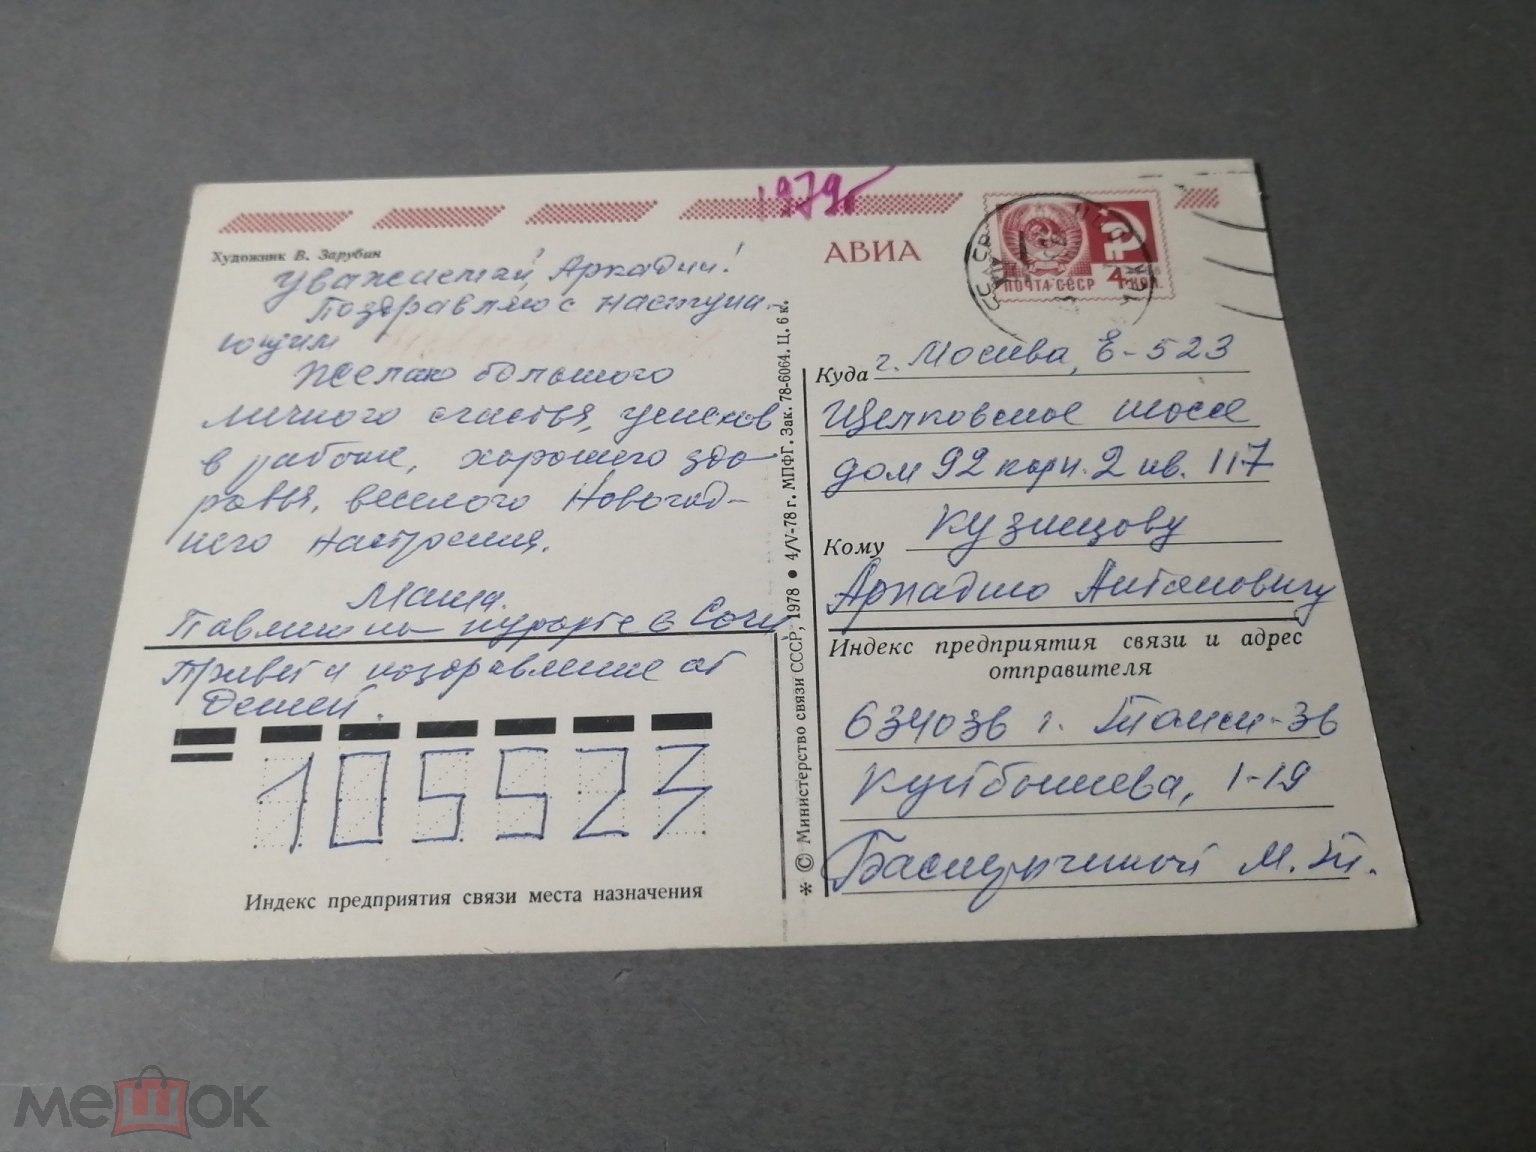 1979г
Художник В. Зарубин
АВИА
ПОЧТА СССР 4 КОП.
Уважаемый, Аркадий!
Поздравляю с наступа-
ющим
Желаю большого
личного счастья, успехов
в работе, хорошего здо-
ровья, веселого Новогод-
него настроения.
Маша.
Павлик на курорте в Сочи
Привет и поздравление от
Детей.
105523
Индекс предприятия связи места назначения
* © Министерство связи СССР, 1978 • 4/V-78 г. МПФГ. Зак. 78-6064. Ц. 6 к.
Куда г. Москва, Е-523
Щелковское шоссе
дом 92 корп. 2 кв. 117
Кому Кузнецову
Аркадию Антоновичу
Индекс предприятия связи и адрес
отправителя
634036 г. Томск-36
Куйбышева, 1-19
М. П.
мешок